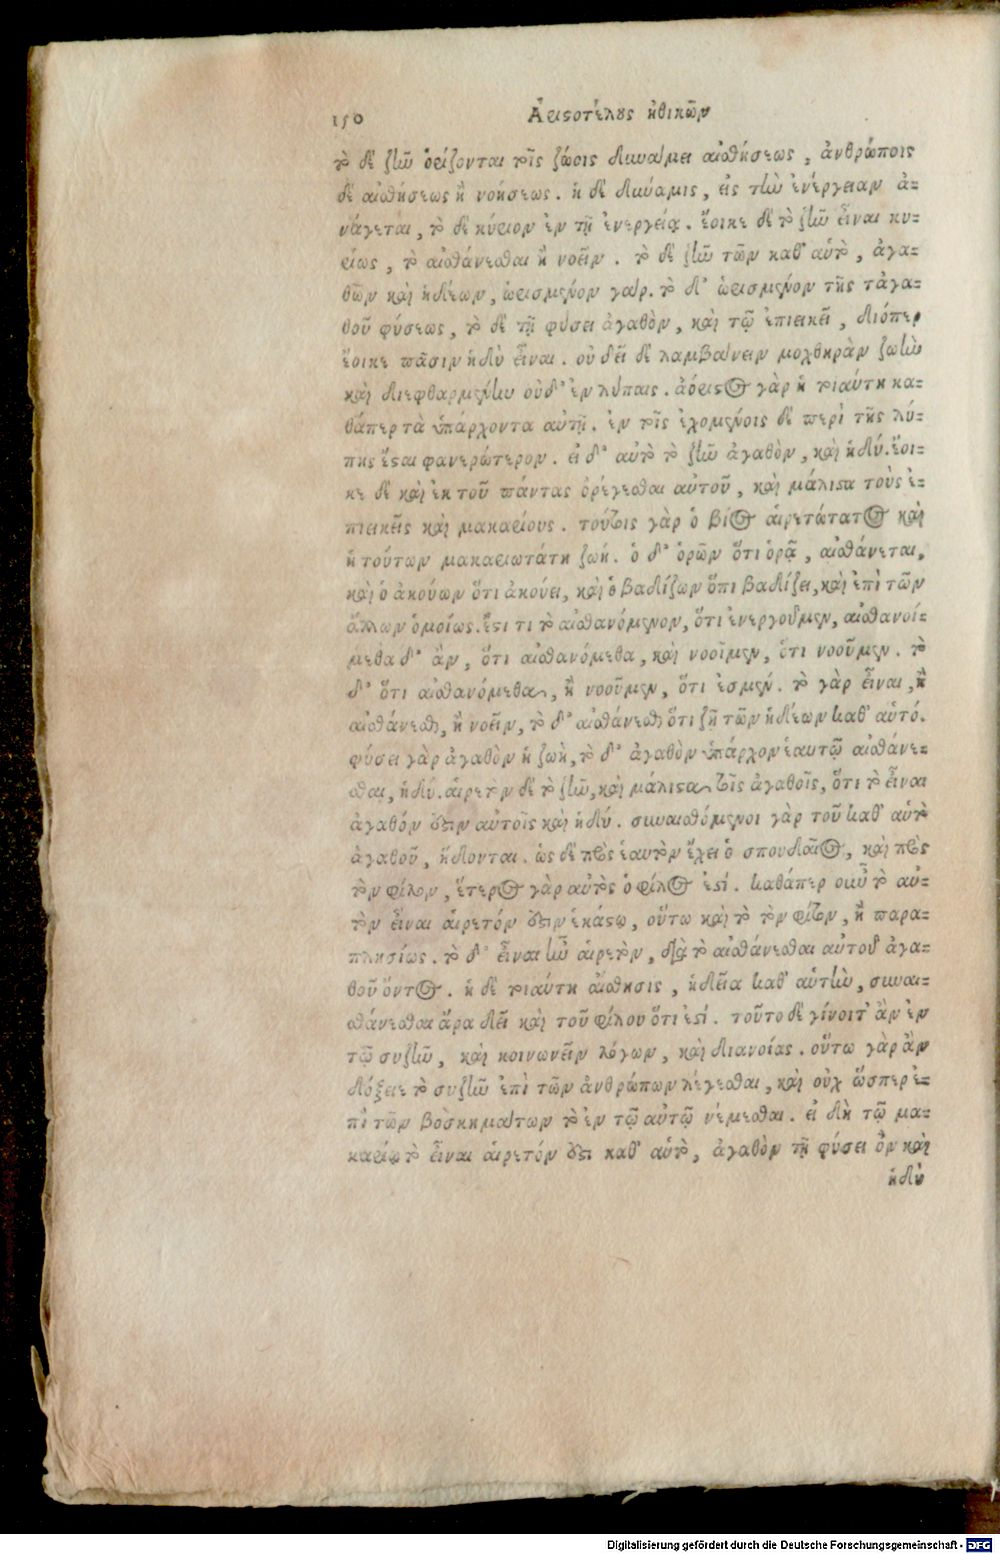 150 Ἀριστοτέλους ἠθικῶν
τὸ δὲ ζῆν ὁρίζονται τοῖς ζώοις δυνάμει αἰσθήσεως, ἀνθρώποις
δὲ αἰσθήσεως ἢ νοήσεως. ἡ δὲ δύναμις, εἰς τὴν ἐνέργειαν ἀ-
νάγεται, τὸ δὲ κύριον ἐν τῇ ἐνεργείᾳ. ἔοικε δὲ τὸ ζῆν εἶναι κυ-
ρίως, τὸ αἰσθάνεσθαι ἢ νοεῖν. τὸ δὲ ζῆν τῶν καθ' αὑτὸ, ἀγα-
θῶν καὶ ἡδέων, ὡρισμένον γάρ. τὸ δ' ὡρισμένον τῆς τἀγα-
θοῦ φύσεως, τὸ δὲ τῇ φύσει ἀγαθὸν, καὶ τῷ ἐπιεικεῖ, διόπερ
ἔοικε πᾶσιν ἡδὺ εἶναι. οὐ δεῖ δὲ λαμβάνειν μοχθηρὰν ζωὴν
καὶ διεφθαρμένην οὐδ' ἐν λύπαις. ἀόριστος γὰρ ἡ τοιαύτη κα-
θάπερ τὰ ὑπάρχοντα αὐτῇ. ἐν τοῖς ἐχομένοις δὲ περὶ τῆς λύ-
πης ἔσται φανερώτερον. εἰ δ' αὐτὸ τὸ ζῆν ἀγαθὸν, καὶ ἡδύ. ἔοι-
κε δὲ καὶ ἐκ τοῦ πάντας ὀρέγεσθαι αὐτοῦ, καὶ μάλιστα τοὺς ἐ-
πιεικεῖς καὶ μακαρίους. τούτοις γὰρ ὁ βίος αἱρετώτατος καὶ
ἡ τούτων μακαριωτάτη ζωή. ὁ δ' ὁρῶν ὅτι ὁρᾷ, αἰσθάνεται,
καὶ ὁ ἀκούων ὅτι ἀκούει, καὶ ὁ βαδίζων ὅτι βαδίζει, καὶ ἐπὶ τῶν
ἄλλων ὁμοίως. ἔστι τι τὸ αἰσθανόμενον, ὅτι ἐνεργοῦμεν, αἰσθανοί-
μεθα δ' ἂν, ὅτι αἰσθανόμεθα, καὶ νοοῖμεν, ὅτι νοοῦμεν. τὸ
δ' ὅτι αἰσθανόμεθα, ἢ νοοῦμεν, ὅτι ἐσμέν. τὸ γὰρ εἶναι, ἢ
αἰσθάνεσθαι, ἢ νοεῖν, τὸ δ' αἰσθάνεσθαι ὅτι ζῇ τῶν ἡδέων καθ' αὑτό.
φύσει γὰρ ἀγαθὸν ἡ ζωὴ, τὸ δ' ἀγαθὸν ὑπάρχον ἑαυτῷ αἰσθάνε-
σθαι, ἡδύ. αἱρετὸν δὲ τὸ ζῆν, καὶ μάλιστα τοῖς ἀγαθοῖς, ὅτι τὸ εἶναι
ἀγαθόν ἐστιν αὐτοῖς καὶ ἡδύ. συναισθόμενοι γὰρ τοῦ καθ' αὑτὸ
ἀγαθοῦ, ἥδονται. ὡς δὲ πρὸς ἑαυτὸν ἔχει ὁ σπουδαῖος, καὶ πρὸς
τὸν φίλον, ἕτερος γὰρ αὐτὸς ὁ φίλος ἐστί. καθάπερ οὖν τὸ αὐ-
τὸν εἶναι αἱρετόν ἐστιν ἑκάστῳ, οὕτω καὶ τὸ τὸν φίλον, ἢ παρα-
πλησίως. τὸ δ' εἶναι ἦν αἱρετὸν, διὰ τὸ αἰσθάνεσθαι αὐτοῦ ἀγα-
θοῦ ὄντος. ἡ δὲ τοιαύτη αἴσθησις, ἡδεῖα καθ' αὑτὴν, συναι-
σθάνεσθαι ἄρα δεῖ καὶ τοῦ φίλου ὅτι ἐστί. τοῦτο δὲ γίνοιτ' ἂν ἐν
τῷ συζῆν, καὶ κοινωνεῖν λόγων, καὶ διανοίας. οὕτω γὰρ ἂν
δόξειε τὸ συζῆν ἐπὶ τῶν ἀνθρώπων λέγεσθαι, καὶ οὐχ ὥσπερ ἐ-
πὶ τῶν βοσκημάτων τὸ ἐν τῷ αὐτῷ νέμεσθαι. εἰ δὴ τῷ μα-
καρίῳ τὸ εἶναι αἱρετόν ἐστι καθ' αὑτὸ, ἀγαθὸν τῇ φύσει ὂν καὶ
ἡδὺ
Digitalisierung gefördert durch die Deutsche Forschungsgemeinschaft - DFG